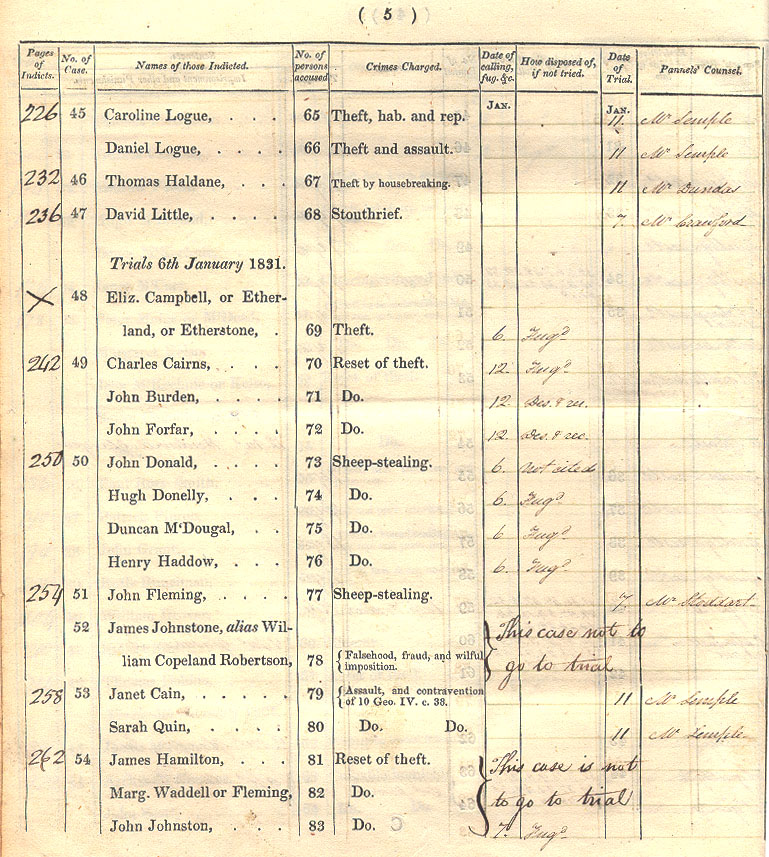 ( 5 )
Pages of Indicts. No. of Case. Names of those Indicted. No. of persons accused Crimes Charged. Date of calling, fug. &c. How disposed of, if not tried. Date of Trial. Pannels' Counsel.
JAN. JAN.
226 45 Caroline Logue, . . . 65 Theft, hab. and rep. 11 Mr Semple
Daniel Logue, . . . . 66 Theft and assault. 11 Mr Semple
232 46 Thomas Haldane, . . . 67 Theft by housebreaking. 11 Mr Dundas
236 47 David Little, . . . . 68 Stouthrief. 7. Mr Crauford
Trials 6th January 1831.
X 48 Eliz. Campbell, or Ether-
land, or Etherstone, . 69 Theft. 6. Fugd
242 49 Charles Cairns, . . . 70 Reset of theft. 12. Fugd
John Burden, . . . . 71 Do. 12. Des. & rec.
John Forfar, . . . . 72 Do. 12. Des. & rec.
250 50 John Donald, . . . . 73 Sheep-stealing. 6. Not cited
Hugh Donelly, . . . 74 Do. 6. Fugd
Duncan M'Dougal, . . 75 Do. 6. Fugd
Henry Haddow, . . . 76 Do. 6. Fugd
254 51 John Fleming, . . . . 77 Sheep-stealing. 7. Mr Stoddart
52 James Johnstone, alias Wil- This case not to
liam Copeland Robertson, 78 { Falsehood, fraud, and wilful imposition. go to trial
258 53 Janet Cain, . . . . . 79 { Assault, and contravention of 10 Geo. IV. c. 38. 11 Mr Semple
Sarah Quin, . . . . . 80 Do. Do. 11 Mr Semple
262 54 James Hamilton, . . . 81 Reset of theft. This case is not
Marg. Waddell or Fleming, 82 Do. to go to trial
John Johnston, . . . 83 Do. 7. Fugd